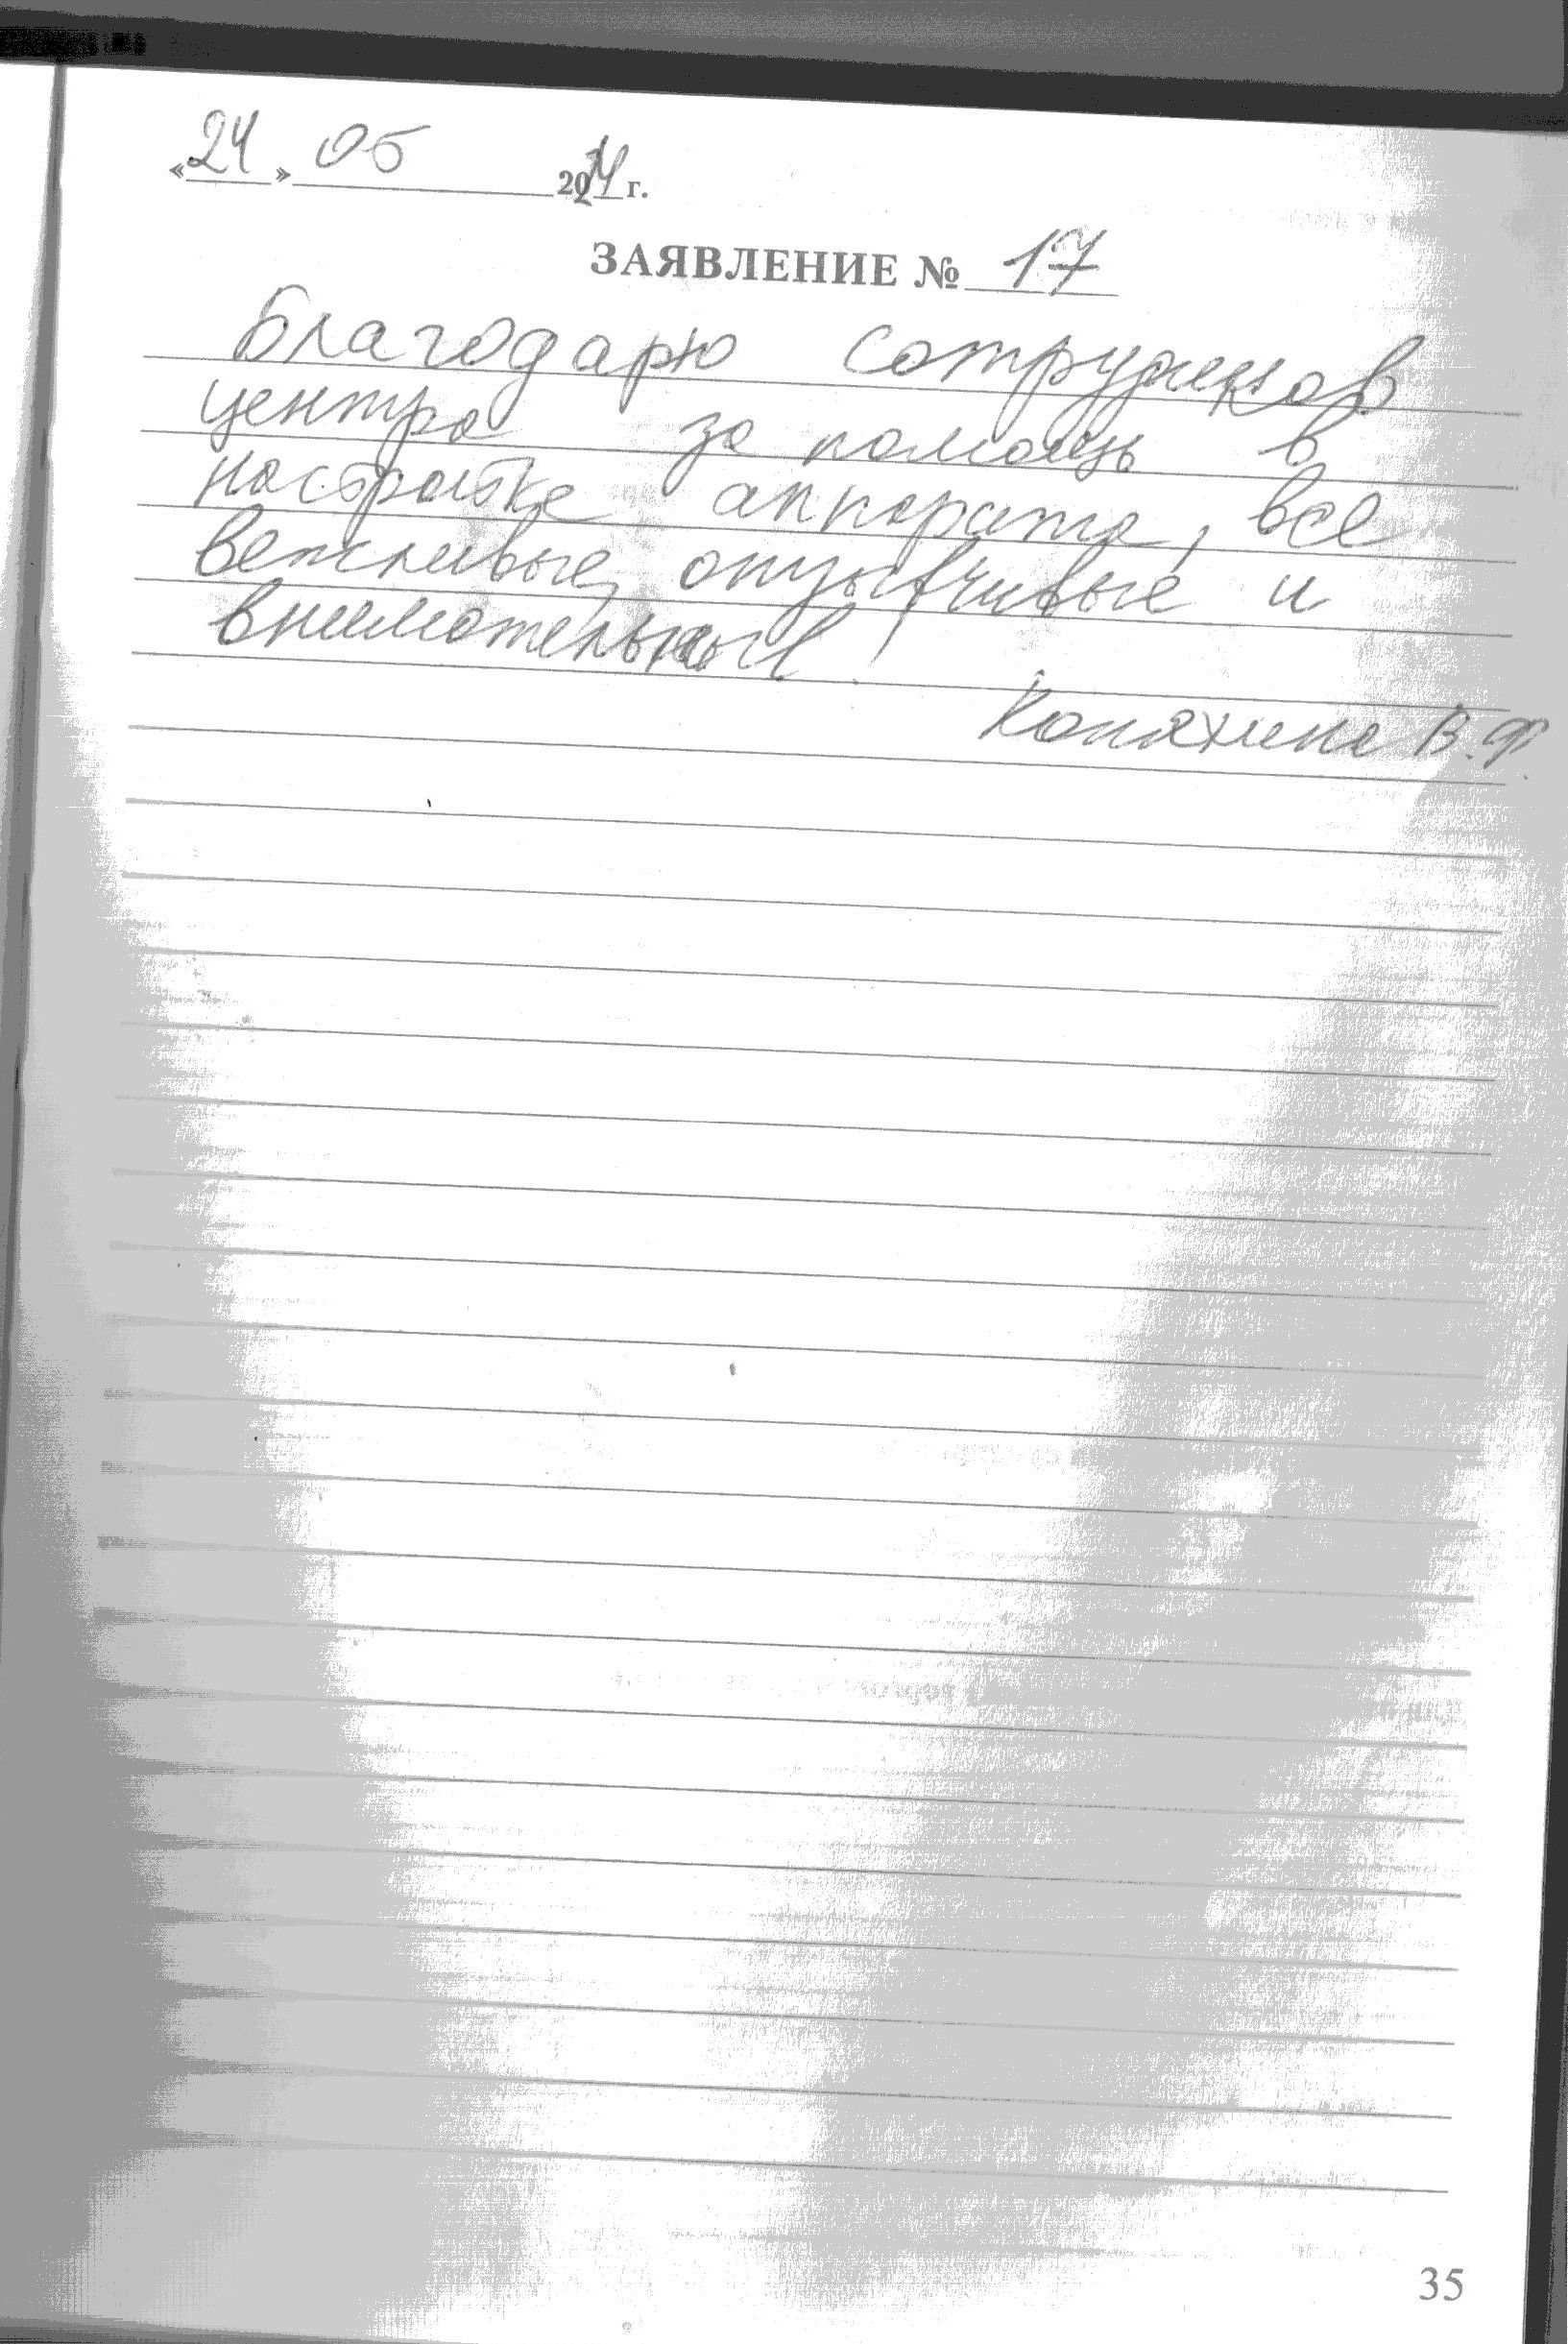 «24» 05 2024 г.
ЗАЯВЛЕНИЕ № 17
Благодарю сотрудников
центра за помощь в
настройке аппарата, все
вежливые, отзывчивые и
внимательные!
Коняхина В.Ф.
35